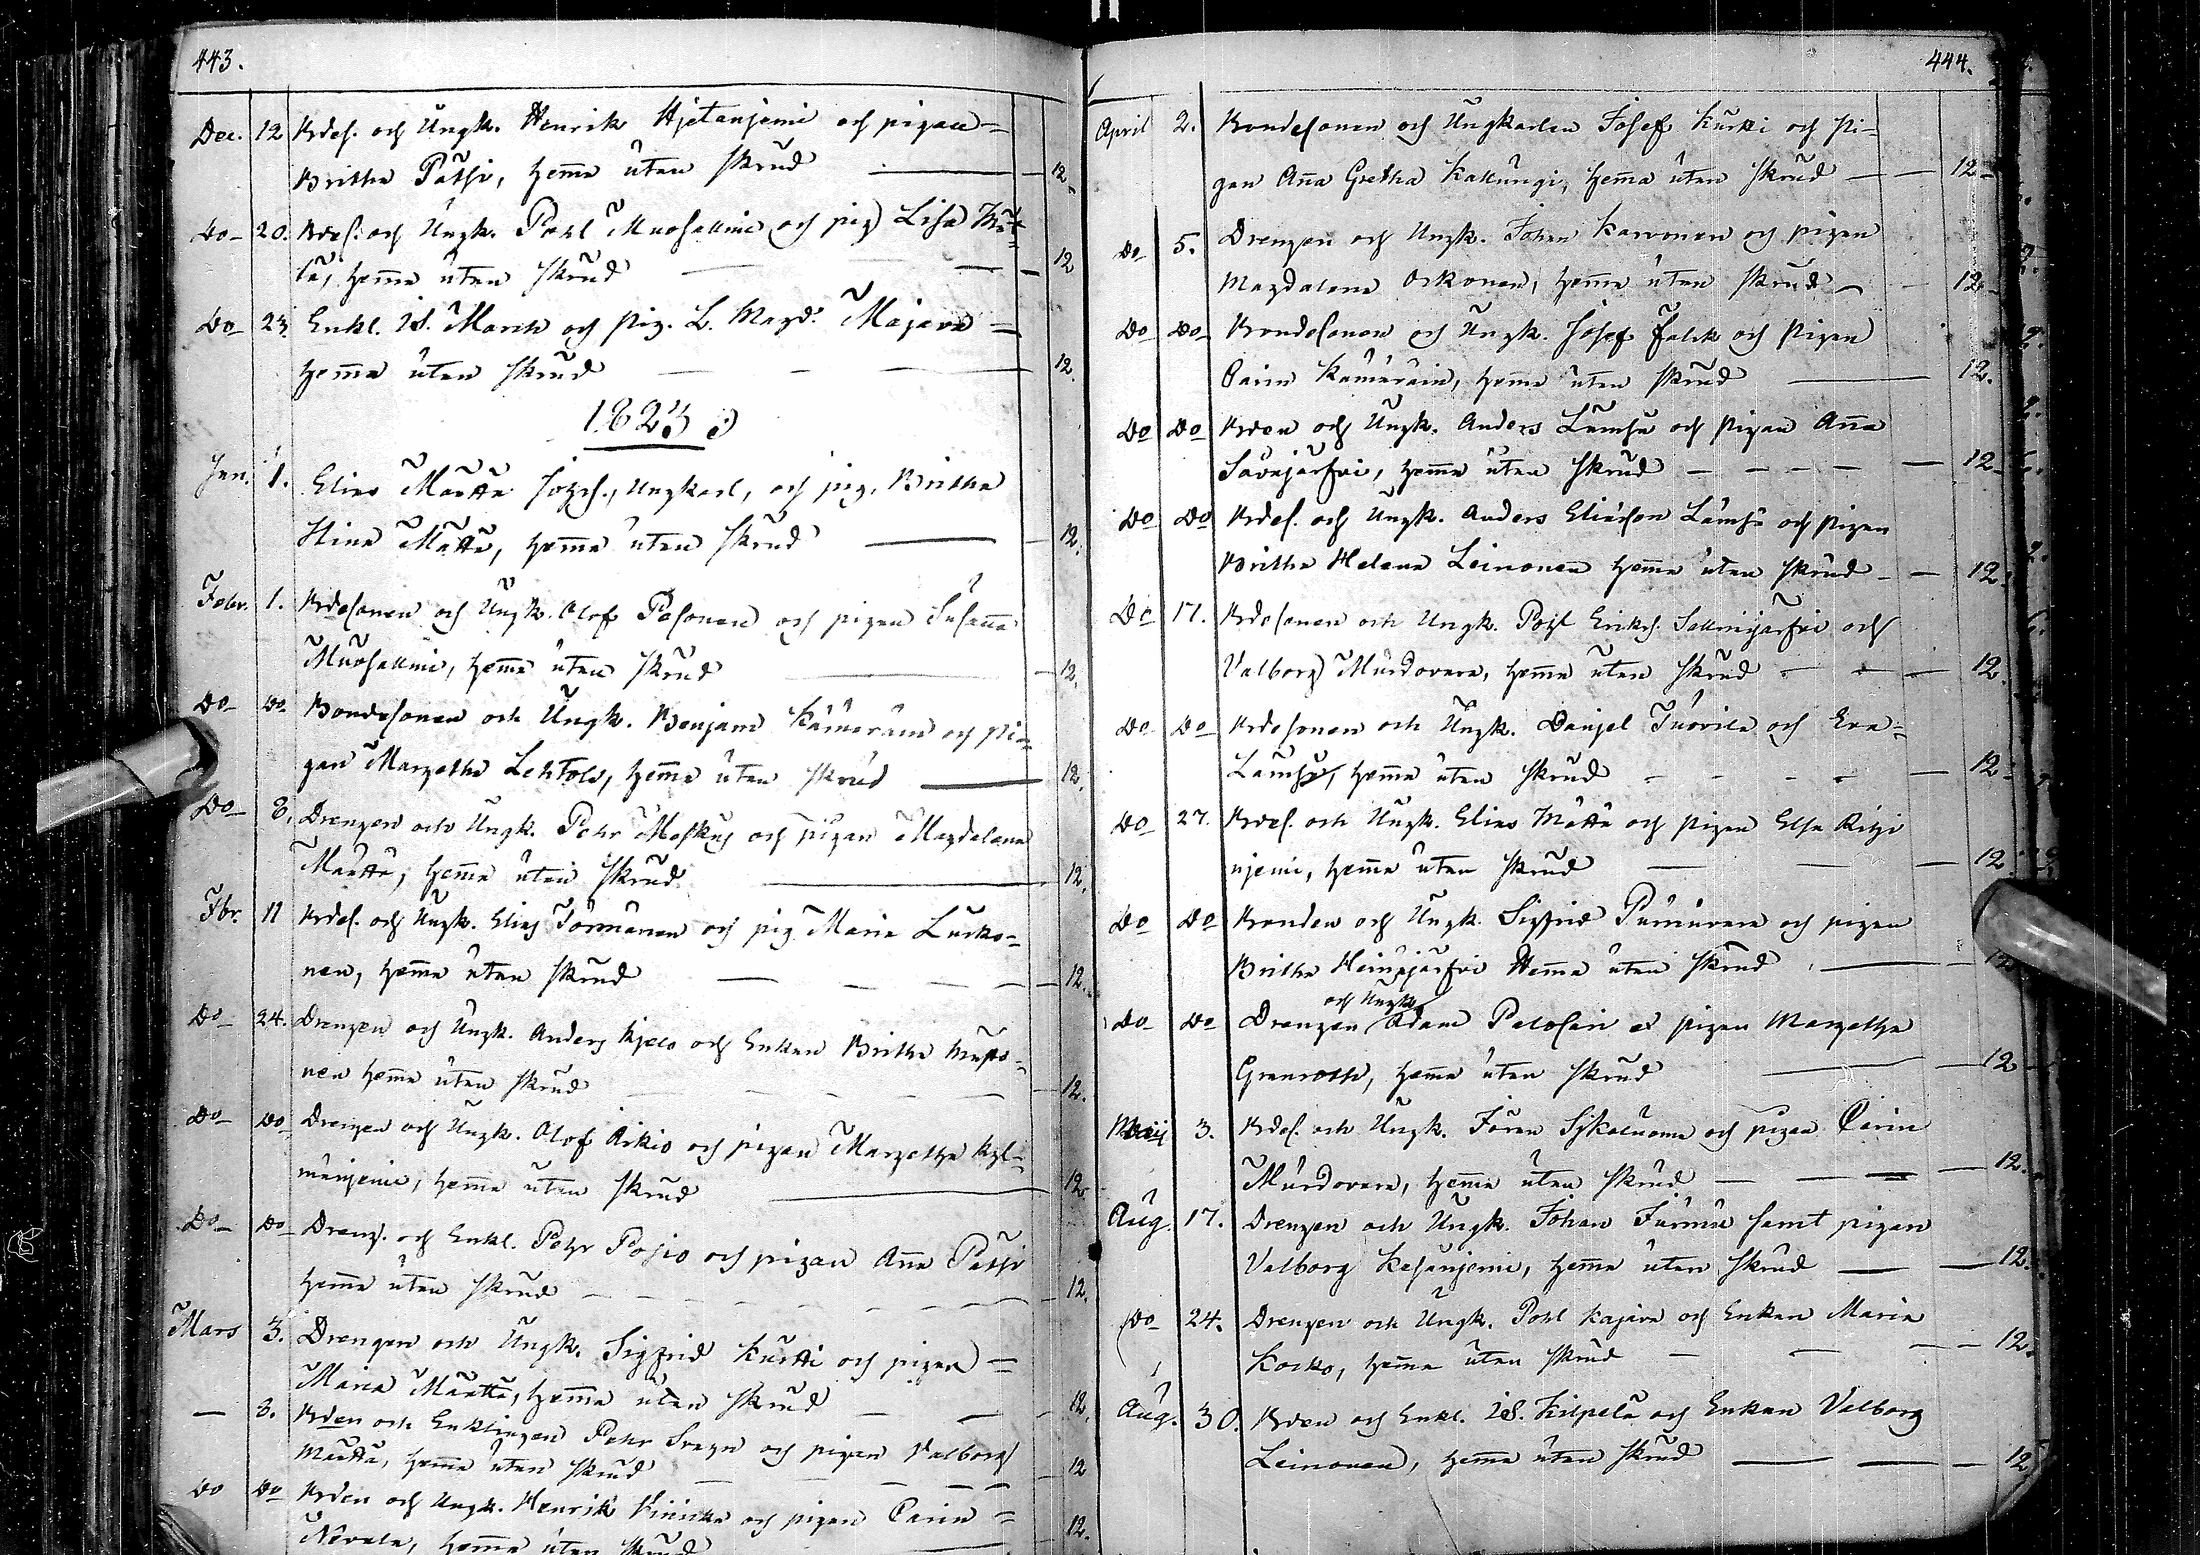 443.
Dec. 12 Bdes. och Ungk. Henrik Hjetanjemi och pigan
Britha Pätsi, hemma utan skrud — 12
Do 20. Bdes. och Ungk. Pohl Muosalmi och pig Lisa Mät-
tä, hemma utan skrud — 12
Do 23 Enkl. Is. March och pig. B. Magd. Majava
hemma utan skrud — 12.
1823
Jan. 1. Elias Määttä, Ungkarl, och pig. Britha
Stina Määttä, hemma utan skrud — 12.
Febr. 1. Bdesonen och Ungk. Olof Pesonen och pigan Susanna
Muosalmi, hemma utan skrud — 12.
Do Do Bondesonen och Ungk. Benjam Kämäräin och pi-
gan Margetha Lehtola, hemma utan skrud — 12.
Do 8. Drengen och Ungk. Pehr Moskus och pigan Magdalena
Määttä, hemma utan skrud — 12.
Fbr. 11 Bdes. och Ungk. Elias Törmänen och pig Maria Lurko-
nen, hemma utan skrud — 12.
Do 24. Drengen och Ungk. Anders och Enkan Britha
nen hemma utan skrud — 12.
Do Do Drengen och Ungk. Olof Aikio och pigan Margetha Kyl-
mänjemi, hemma utan skrud — 12
Do Do Dreng. och Enkl. Pehr Posio och pigan Anna Pätsi
hemma utan skrud — 12.
Mars 3. Drengen och Ungk. Sigfrid Kurtti och pigan
Maria Määttä, hemma utan skrud — 12.
— 3. Bden och Enklingen Pehr och pigan Valborg
Määttä, hemma utan skrud — 12
Do Do Bden och Ungk. Henrik och pigan Carin
Nevala, hemma utan skrud — 12.
444.
April 2. Bondesonen och Ungkarlen Josef Kurtti och pi-
gan Anna Gretha Kallungi, hemma utan skrud — 12
Do 5. Drengen och Ungk. Johan Karvonen och pigan
Magdalena Oikonen, hemma utan skrud — 12
Do Do Bondesonen och Ungk. Josef Falck och pigan
Carin Kämäräin, hemma utan skrud — 12.
Do Do Bden och Ungk. Anders Lämsä och pigan Anna
Säväjärfvi, hemma utan skrud — 12
Do Do Bdes. och Ungk. Anders Eliæson Lämsä och pigan
Britha Helena Leinonen hemma utan skrud — 12.
Do 17. Bdesonen och Ungk. Pohl Eriks. Salmijärfvi och
Valborg Murdovara, hemma utan skrud — 12.
Do Do Bdesonen och Ungk. Daniel Tuovila och Eva
Lämsä, hemma utan skrud — 12
Do 27. Bdes. och Ungk. Elias Määttä och pigan Elsa Ritzi
njemi, hemma utan skrud — 12
Do Do Bonden och Ungk. Sigfrid Purnuvara och pigan
Britha Heinijärfvi Hemma utan skrud — 12
och Ungk.
Do Do Drengen Adam Pelosari och pigan Margetha
Granroth, hemma utan skrud — 12
Maij 3. Bdes. och Ungk. Jöran Sykäluoma och pigan Carin
Murdovara, hemma utan skrud — 12.
Aug. 17. Drengen och Ungk. Johan Jurmu samt pigan
Valborg Kesänjemi, hemma utan skrud — 12.
Do 24. Drengen och Ungk. Pohl Kajava och Enkan Maria
Korko, hemma utan skrud — 12.
Aug. 30. Bden och Enkl. Is. Kilpelä och Enkan Valborg
Leinonen, hemma utan skrud — 12